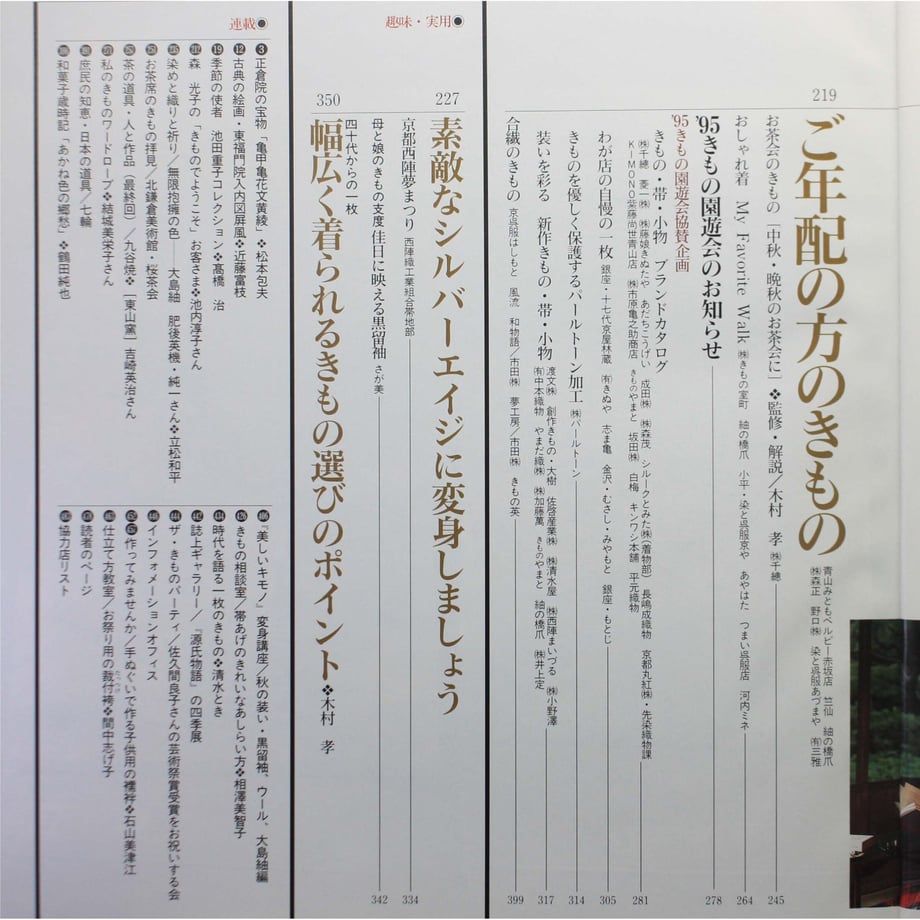 219
ご年配の方のきもの
青山みともベルビー赤坂店 竺仙 紬の橋爪
㈱森正 野口㈱ 染と呉服あづまや ㈲三雅
お茶会のきもの[中秋・晩秋のお茶会に]❖監修・解説/木村 孝 ㈱千總 245
おしゃれ着 My Favorite Walk ㈱きもの室町 紬の橋爪 小平・染と呉服京や あやはた つまい呉服店 河内ミネ 264
'95きもの園遊会のお知らせ 278
'95きもの園遊会協賛企画
きもの・帯・小物 ブランドカタログ
㈱千總 菱一㈱ ㈱藤娘きぬたや あだちこうげい 成田㈱ ㈱森茂 シルークとみた㈱〈着物部〉 長嶋成織物 京都丸紅㈱・先染織物課
KIMONO紫藤尚世青山店 ㈱市原亀之助商店 きものやまと 坂田㈱ 白梅 キンワシ本舗 平元織物 281
わが店の自慢の一枚 銀座・十七代京屋林蔵 ㈲きぬや 志ま亀 金沢・むさし・みやもと 銀座・もとじ 305
きものを優しく保護するパールトーン加工 ㈱パールトーン 314
装いを彩る 新作きもの・帯・小物
渡文㈱ 創作きもの・大樹 佐啓産業㈱ ㈱清水屋 ㈱西陣まいづる ㈱小野澤
㈲中本織物 やまだ織㈱ ㈱加藤萬 きものやまと 紬の橋爪 ㈱井上定 317
合繊のきもの 京呉服はしもと 風流 和物語/市田㈱ 夢工房/市田㈱ きもの英 399
趣味・実用●
227
素敵なシルバーエイジに変身しましょう
京都西陣夢まつり 西陣織工業組合帯地部 334
母と娘のきもの支度 佳日に映える黒留袖 さが美 342
350
四十代からの一枚
幅広く着られるきもの選びのポイント❖木村 孝
連載●
3 正倉院の宝物「亀甲亀花文黄綾」❖松本包夫
12 古典の絵画・東福門院入内図屏風❖近藤富枝
19 季節の使者 池田重子コレクション❖髙橋 治
森 光子の「きものでようこそ」お客さま❖池内淳子さん
染めと織りと祈り/無限抱擁の色——大島紬 肥後英機・純一さん❖立松和平
お茶席のきもの拝見/北鎌倉美術館・桜茶会
茶の道具・人と作品(最終回)/九谷焼❖[東山窯]吉崎英治さん
私のきものワードローブ❖結城美栄子さん
庶民の知恵・日本の道具/七輪
和菓子歳時記「あかね色の郷愁」❖鶴田純也
『美しいキモノ』変身講座/秋の装い・黒留袖、ウール、大島紬編
きもの相談室/帯あげのきれいなあしらい方❖相澤美智子
時代を語る一枚のきもの❖清水とき
誌上ギャラリー/『源氏物語』の四季展
ザ・きものパーティ/佐久間良子さんの芸術祭賞受賞をお祝いする会
インフォメーションオフィス
作ってみませんか/手ぬぐいで作る子供用の襦袢❖石山美津江
仕立て方教室/お祭り用の裁付袴❖間中志げ子
読者のページ
協力店リスト